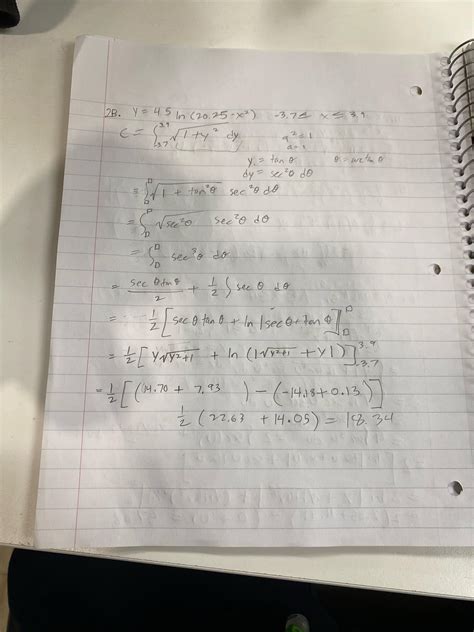 2B. y = 4.5 ln (20.25 - x²) -3.7 ≤ x ≤ 3.9
= ∫ √1 + y² dy a² = 1
3.9 3.7 a = 1
y = tan θ
dy = sec²θ dθ
= ∫ √1 + tan²θ sec²θ dθ
= ∫ √sec²θ sec²θ dθ
= ∫ sec³θ dθ
= sec θ tan θ / 2 + 1/2 ∫ sec θ dθ
= 1/2 [sec θ tan θ + ln |sec θ + tan θ|]
= 1/2 [y √y²+1 + ln (|√y²+1 + y|)] 3.9 -3.7
= 1/2 [(14.70 + 7.93 ) - (-14.18 + 0.13 )]
1/2 (22.63 + 14.05) = 18.34